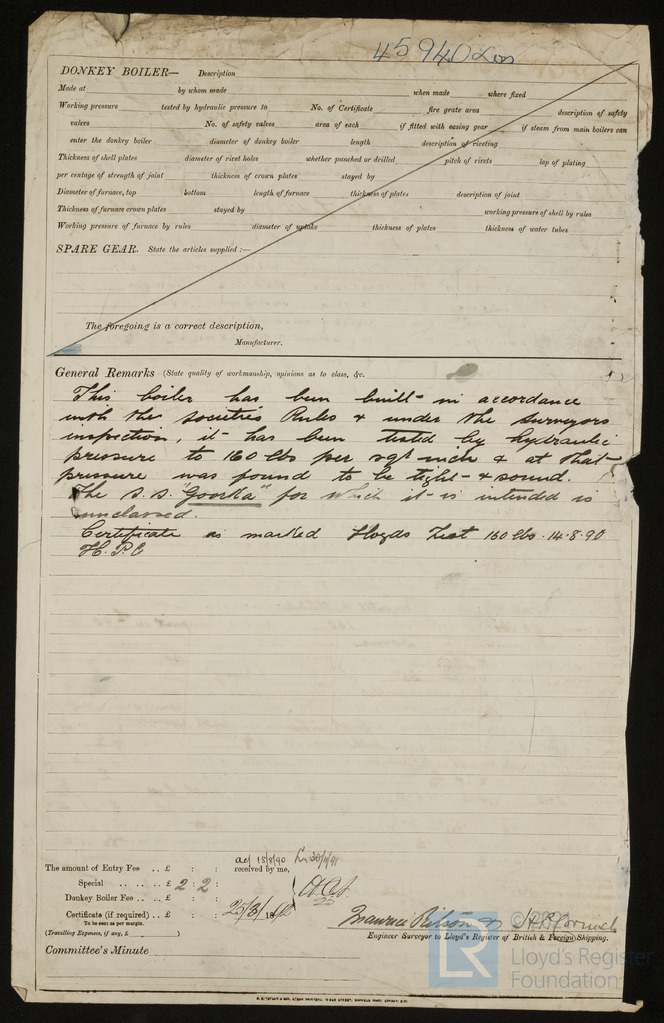 45940 Lon
DONKEY BOILER— Description
Made at by whom made when made where fixed
Working pressure tested by hydraulic pressure to No. of Certificate fire grate area description of safety
valves No. of safety valves area of each if fitted with easing gear if steam from main boilers can
enter the donkey boiler diameter of donkey boiler length description of riveting
Thickness of shell plates diameter of rivet holes whether punched or drilled pitch of rivets lap of plating
per centage of strength of joint thickness of crown plates stayed by
Diameter of furnace, top bottom length of furnace thickness of plates description of joint
Thickness of furnace crown plates stayed by working pressure of shell by rules
Working pressure of furnace by rules diameter of uptake thickness of plates thickness of water tubes
SPARE GEAR. State the articles supplied:—
The foregoing is a correct description,
Manufacturer.
General Remarks (State quality of workmanship, opinions as to class, &c.
This boiler has been built in accordance
with the societies Rules & under the surveyors
inspection, it has been tested by hydraulic
pressure to 160 lbs per sqr inch & at that
pressure was found to be tight & sound.
The s.s. "Goorka" for which it is intended is
unclassed.
Certificate as marked Lloyds Test 160 lbs. 14.8.90
H.P.C
The amount of Entry Fee .. £ : : received by me,
Special .. .. .. £ 2 : 2 :
Donkey Boiler Fee .. .. £ : :
Certificate (if required) .. £ : : 25/8/1890
To be sent as per margin.
(Travelling Expenses, if any, £ )
Committee's Minute
Engineer Surveyor to Lloyd's Register of British & Foreign Shipping.
LR
Lloyd's Register
Foundation